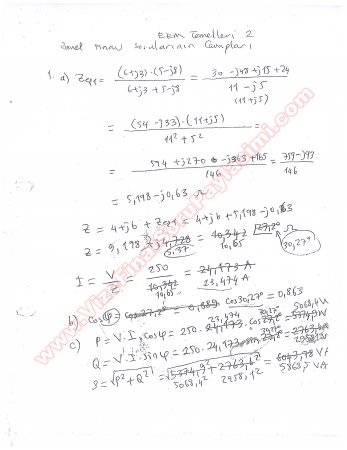 EEM Temelleri 2
Genel Sınav Sorularının Cevapları
1. a) Zeş1 = (6+j3).(5-j8) / 6+j3 + 5-j8 = 30 - j48 + j15 + 24 / 11 - j5
(11+j5)
= (54 - j33).(11+j5) / 11² + 5² =
= 594 + j270 - j363 + 165 / 146 = 759 - j93 / 146
= 5,198 - j0,63 Ω
Z = 4+j6 + Zeş1 = 4+j6 + 5,198 - j0,63
Z = 9,198 + j 5,37 = 10,65 30,27°
I = V / Z = 250 / 10,65 = 23,474 A
b) Cosφ = cos 30,27° = 0,863
c) P = V.I.cosφ = 250. 23,474 cos 30,27° = 5068,4 W
Q = V.I.sinφ = 250.
S = √P² + Q² = √5068,4² 2958,1² = 5868,5 VA
www.VizeFinalSoruPaylasimi.com